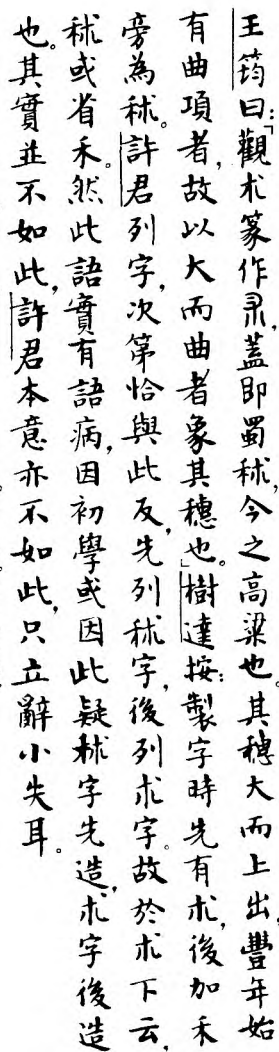 王筠曰：「觀朮篆作𣎳，蓋即蜀秫，今之高粱也。其穗大而上出，豐年始
有曲項者，故以大而曲者象其穗也。」樹達按：製字時先有朮，後加禾
旁為秫。許君列字，次第恰與此反，先列秫字，後列朮字。故於朮下云，
秫或省禾。然此語實有語病，因初學或因此疑秫字先造，朮字後造
也。其實並不如此，許君本意亦不如此，只立辭小失耳。